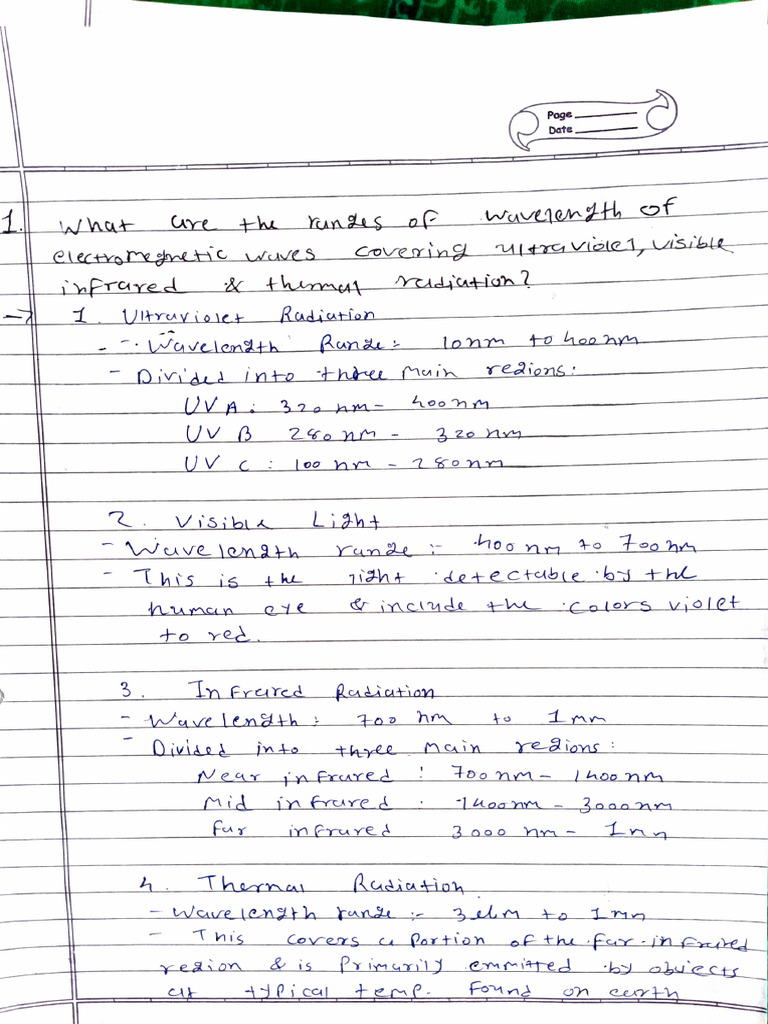 Page
Date
1. What are the ranges of wavelength of
electromegnetic waves covering ultraviolet, visible
infrared & thermal radiation?
→ 1. Ultraviolet Radiation
- Wavelength Range:- 10nm to 400nm
- Divided into three main regions:
UV A: 320 nm - 400nm
UV B 280 nm - 320 nm
UV C : 100 nm - 280nm
2. Visible Light
- Wavelength range :- 400nm to 700nm
- This is the light detectable by the
human eye & include the colors violet
to red.
3. Infrared Radiation
- Wavelength: 700 nm to 1mm
- Divided into three main regions:
Near infrared : 700nm - 1400nm
Mid infrared : 1400nm - 3000nm
far infrared 3000 nm - 1mm
4. Thermal Radiation
- Wavelength range :- 3 um to 1mm
- This covers a portion of the far-infrared
region & is primarily emmitted by objects
at typical temp. found on earth